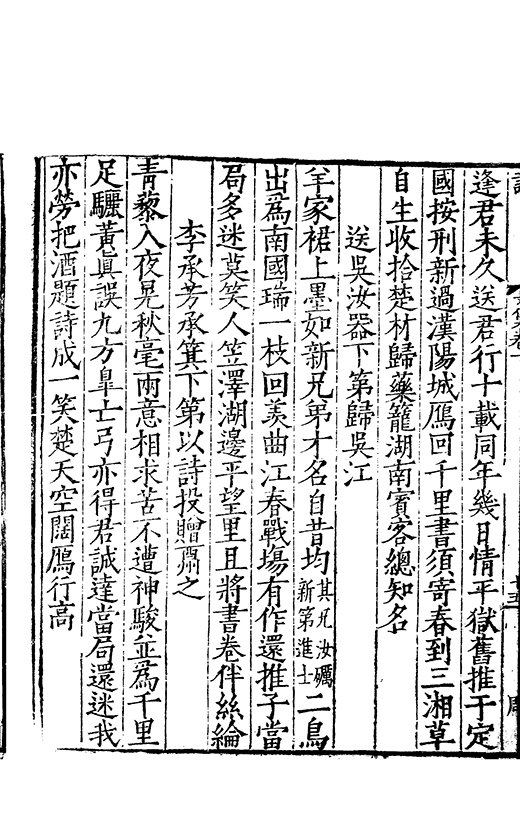 逢君未久送君行十載同年幾日情平獄舊推于定
國按刑新過漢陽城鴈回千里書須寄春到三湘草
自生收拾楚材歸藥籠湖南賓客總知名
送吳汝器下第歸吳江
羊家裙上墨如新兄弟才名自昔均其兄汝礪新第進士二鳥
出為南國瑞一枝回羨曲江春戰塲有作還推子當
局多迷莫笑人笠澤湖邊平望里且將書卷伴絲綸
李承芳承箕下第以詩投贈酬之
青藜入夜晃秋毫兩意相求苦不遭神駿並為千里
足驪黃眞誤九方臯亡弓亦得君誠達當局還迷我
亦勞把酒題詩成一笑楚天空闊鴈行高